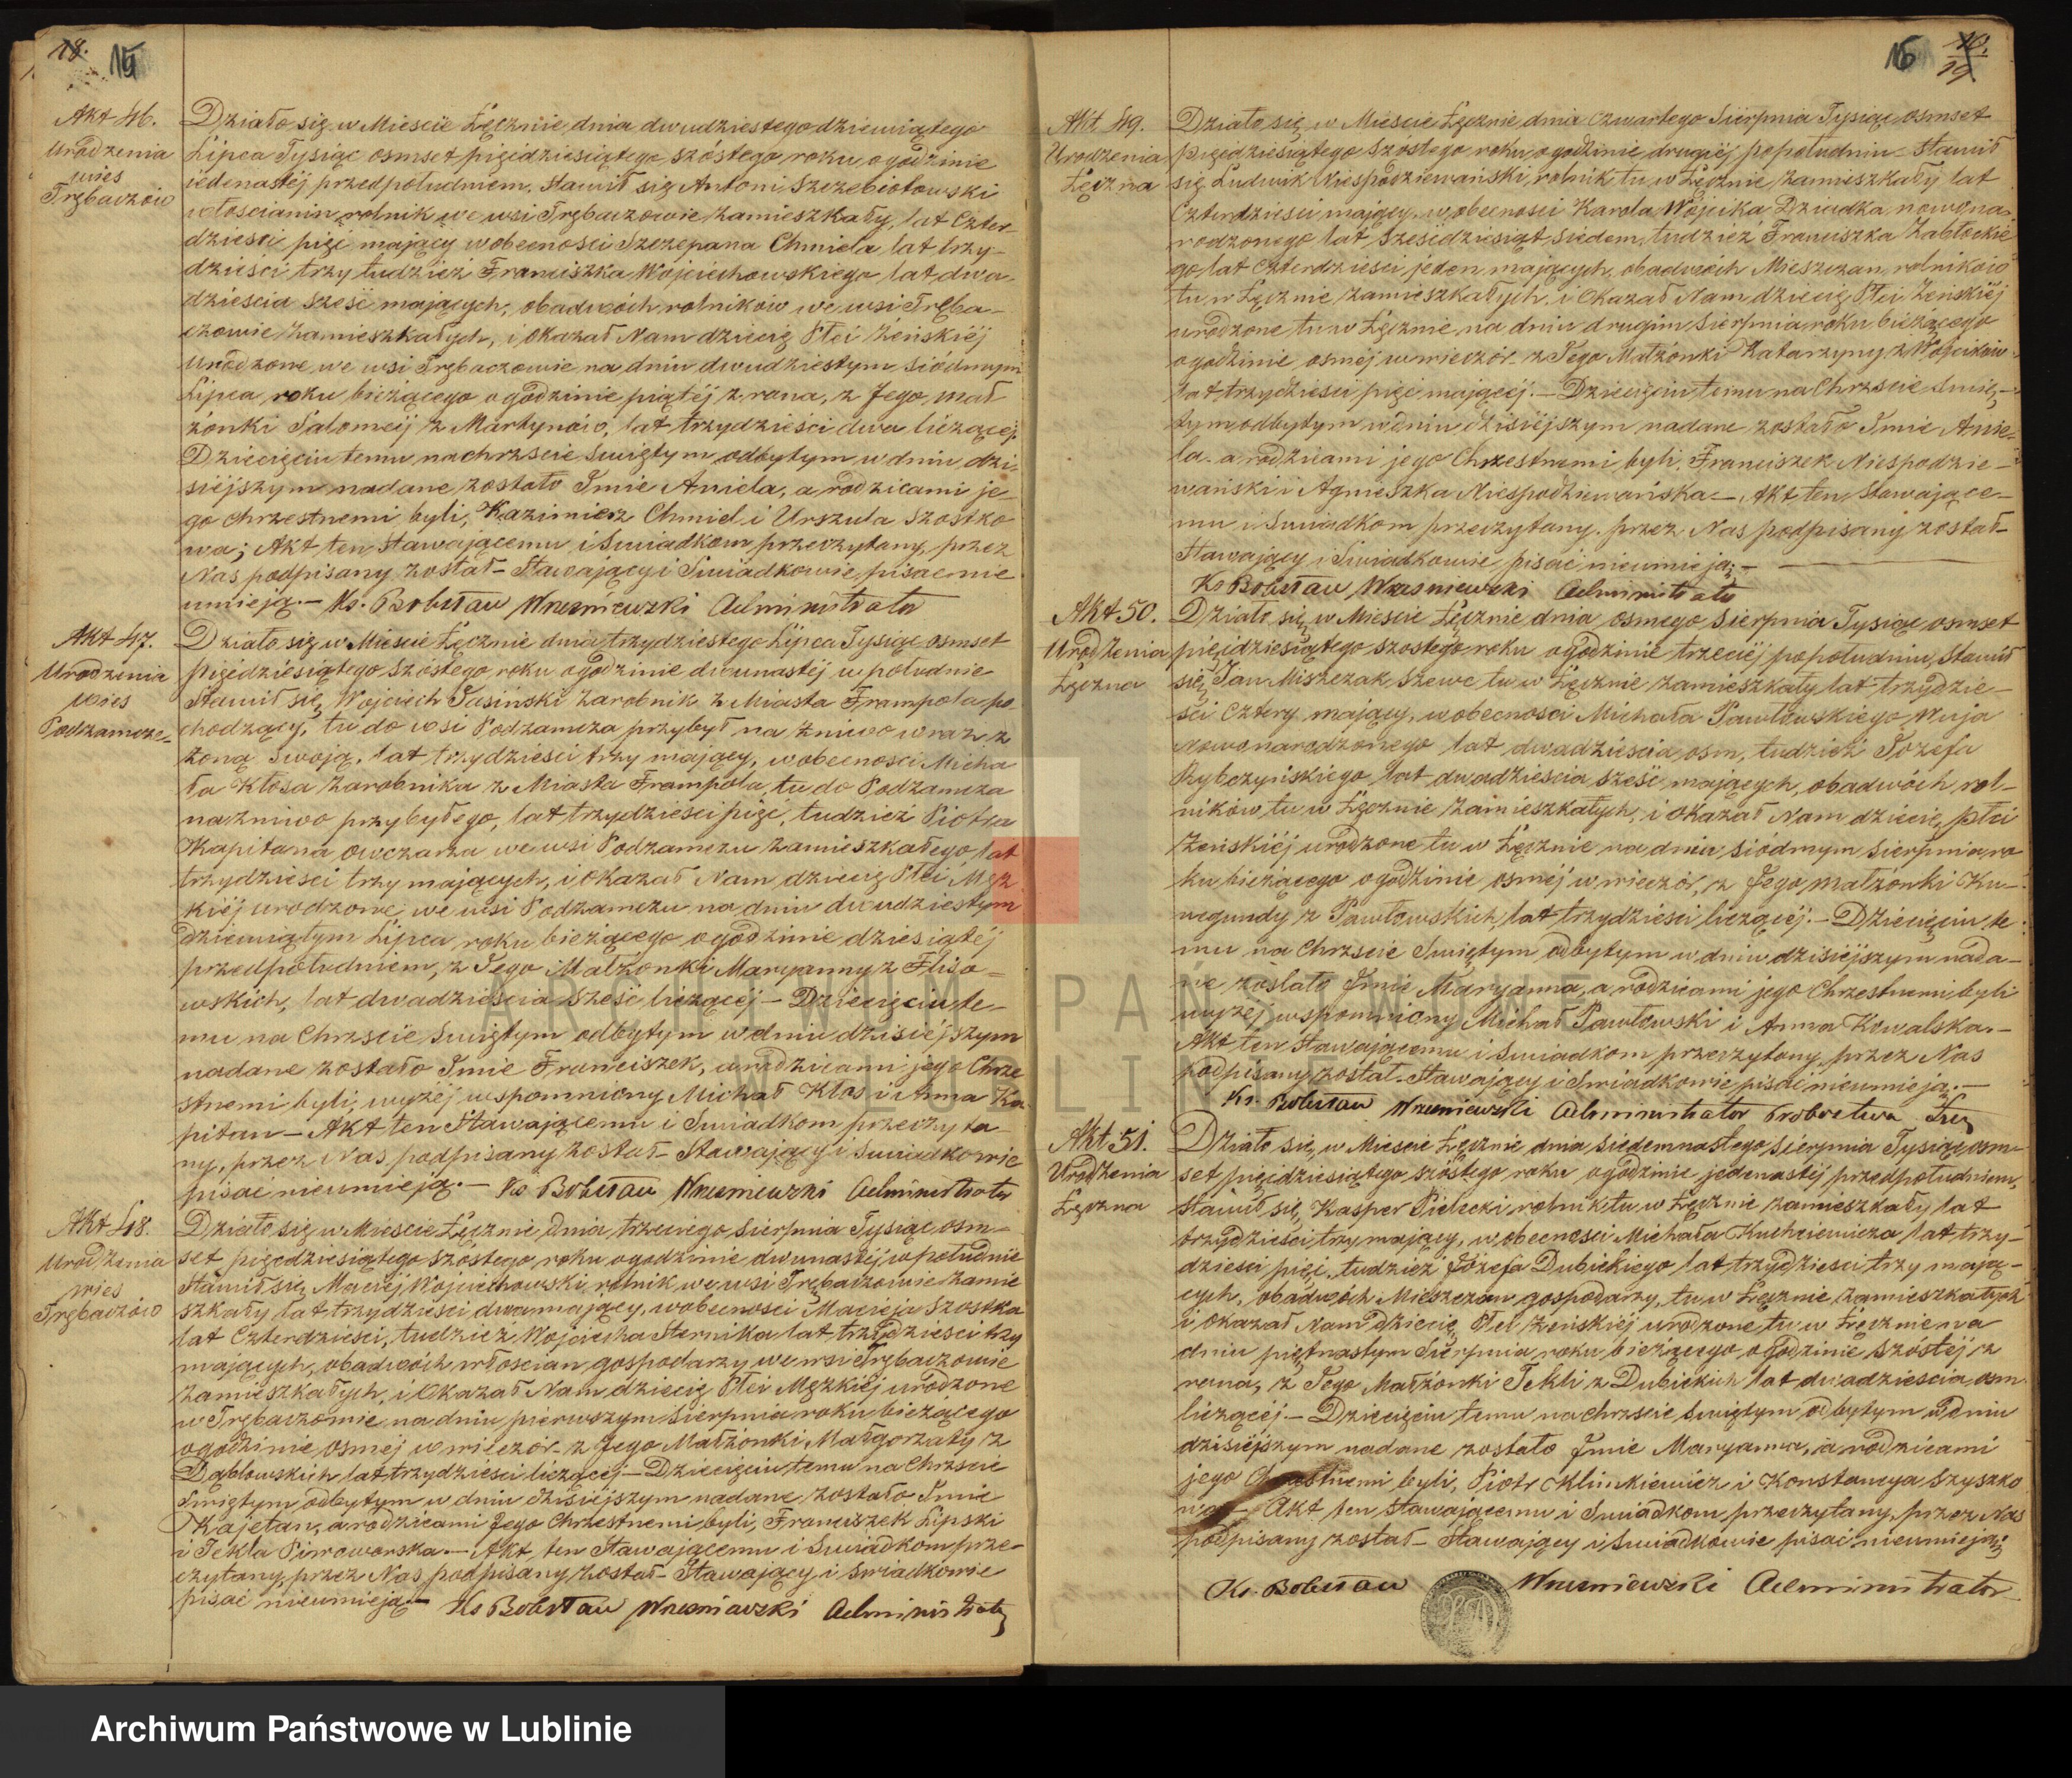 18. 15
Akt 46.
Urodzenia
wieś
Trębaczów
Działo się w Mieście Łęcznie, dnia dwudziestego dziewiątego
Lipca Tysiąc osmset pięćdziesiątego szóstego roku o godzinie
iedenastéj przedpołudniem, stawił się Antoni Szczebiotowski
włościanin rolnik we wsi Trębaczowie zamieszkały, lat czter-
dzieści pięć mający w obecności Szczepana Chmiela lat trzy-
dzieści trzy tudzież Franciszka Wojciechowskiego lat dwa-
dzieścia sześć mających, obadwóch rolników we wsi Tręba-
czowie zamieszkałych, i okazał Nam dziecię Płci żeńskiéj
urodzone we wsi Trębaczowie na dniu dwudziestym siódmym
Lipca, roku bieżącego o godzinie piątéj z rana, z Jego mał
żonki Salomeij z Martynów, lat trzydzieści dwa liczącej.
Dziecięciu temu na chrzcie świętym odbytym w dniu dzi-
siejszym nadane zostało Imie Aniela, a rodzicami je-
go chrzestnemi byli, Kazimierz Chmiel i Urszula Szostko
wa; Akt ten stawaiącemu i Świadkom przeczytany przez
Nas podpisany został – Stawający i Świadkowie pisać nie
umieją. – Ks. Bolesław Wrześniewski Administrator
Akt 47.
Urodzenia
wieś
Podzamcze
Działo się w Mieście Łęcznie dnia trzydziestego Lipca Tysiąc osmset
pięćdziesiątego szóstego roku o godzinie dwunastéj w południe
Stawił się Wojciech Jasiński zarobnik z Miasta Frampola po-
chodzący, tu do wsi Podzamcza przybył na żniwo wraz z
żoną swoją, lat trzydzieści trzy mający, w obecności Micha
ła Kłosa zarobnika z Miasta Frampola, tu do Podzamcza
na żniwo przybyłego, lat trzydzieści pięć, tudzież Piotra
Kapitana owczarza we wsi Podzamczu zamieszkałego lat
trzydzieści trzy mających, i okazał Nam dziecię Płci Męz
kiéj urodzone we wsi Podzamczu na dniu dwudziestym
dziewiątym Lipca roku bieżącego o godzinie dziesiątéj
przedpołudniem, z Jego Małżonki Maryanny z Fliso-
wskich, lat dwadzieścia sześć liczącéj – Dziecięciu te-
mu na Chrzcie świętym odbytym w dniu dzisiéjszym
nadane zostało Imie Franciszek, a rodzicami jego Chrze
stnemi byli, wyżéj wspomniony Michał Kłos i Anna Ka
pitan – Akt ten Stawającemu i Świadkom przeczyta-
ny, przez Nas podpisany został – Stawający i Świadkowie
pisać nieumieją. – Ks Bolesław Wrześniewski Administrator
Akt 48.
Urodzenia
wieś
Trębaczów
Działo się w Mieście Łęcznie dnia trzeciego Sierpnia Tysiąc osm-
set pięćdziesiątego szóstego roku o godzinie dwunastéj w południe
Stawił się Maciéj Wojciechowski rolnik we wsi Trębaczowie zamie
szkały lat trzydzieści dwa mający, w obecności Macieja Szostka
lat czterdzieści, tudzież Wojciecha Sternika lat trzydzieści trzy
mających, obadwóch włościan gospodarzy we wsi Trębaczowie
zamieszkałych, i Okazał Nam dziecię Płci Męzkiéj urodzone
w Trębaczowie na dniu pierwszym Sierpnia roku bieżącego
o godzinie osméj w wieczór z Jego Małżonki Małgorzaty z
Dąblowskich lat trzydzieści liczącéj – Dziecięciu temu na Chrzcie
Świętym odbytym w dniu dzisiéjszym nadane zostało Imie
Kajetan, a rodzicami Jego Chrzestnemi byli, Franciszek Lipski
i Tekla Piwowarska. – Akt ten Stawającemu i Świadkom prze-
czytany, przez Nas podpisany został – Stawający i Świadkowie
pisać nieumieją – Ks Bolesław Wrześniewski Administrator
16 19
Akt 49.
Urodzenia
Łęczna
Działo się w Mieście Łęcznie dnia czwartego Sierpnia Tysiąc osmset
pięćdziesiątego szóstego roku o godzinie drugiéj popołudniu – Stawił
się Ludwik Niespodziewański, rolnik tu w Łęcznie zamieszkały lat
czterdzieści mający, w obecności Karola Wójcika Dziadka nowona-
rodzonego lat sześćdziesiąt siedem, tudzież Franciszka Zabłockie
go lat czterdzieści jeden mających, obadwóch Mieszczan, rolników
tu w Łęcznie zamieszkałych, i okazał Nam dziecię Płci żeńskiéj
urodzone tu w Łęcznie na dniu drugim Sierpnia roku bieżącego
o godzinie osméj w wieczór z Jego Małżonki Katarzyny z Wójcików
lat trzydzieści pięć mającéj. – Dziecięciu temu na Chrzcie Świę-
tym odbytym w dniu dzisiéjszym nadane zostało Imie Anie-
la – a rodzicami jego Chrzestnemi byli, Franciszek Niespodzie-
wański i Agnieszka Niespodziewańska – Akt ten stawające-
mu i Świadkom przeczytany, przez Nas podpisany został –
Stawający i Świadkowie pisać nieumieją; –
Ks Bolesław Wrześniewski Administrator
Akt 50.
Urodzenia
Łęczna
Działo się w Mieście Łęcznie dnia osmego Sierpnia Tysiąc osmset
pięćdziesiątego szóstego roku o godzinie trzeciéj popołudniu, Stawił
się Jan Miszczak, szewc tu w Łęcznie zamieszkały lat trzydzie-
ści cztery mający, w obecności Michała Pawłowskiego Wuja
nowonarodzonego lat dwadzieścia osm, tudzież Józefa
Rybczyńskiego, lat dwadzieścia sześć mających, obadwóch rol-
ników tu w Łęcznie zamieszkałych, i okazał Nam dziecię, płci
żeńskiéj urodzone tu w Łęcznie na dniu siódmym Sierpnia ro
ku bieżącego o godzinie osméj w wieczór, z Jego małżonki Ku-
negundy z Pawłowskich, lat trzydzieści liczącéj. – Dziecięciu te-
mu na Chrzcie Świętym odbytym w dniu dzisiéjszym nada-
ne zostało Imie Maryanna, a rodzicami jego Chrzestnemi byli
wyżéj wspomniony Michał Pawłowski i Anna Kowalska. –
Akt ten stawającemu i Świadkom przeczytany, przez Nas
podpisany został. Stawający i Świadkowie pisać nieumieją. –
Ks. Bolesław Wrześniewski Administrator Probostwa Łęcz
Akt 51.
Urodzenia
Łęczna
Działo się w Mieście Łęcznie dnia siedemnastego Sierpnia Tysiąc osm-
set pięćdziesiątego szóstego roku o godzinie jedenastéj przedpołudniem,
stawił się, Kasper Pielecki rolnik tu w Łęcznie zamieszkały lat
trzydzieści trzy mający, w obecności Michała Kuchciewicza lat trzy-
dzieści pięć, tudzież Józefa Dubickiego lat trzydzieści trzy mają-
cych, obadwóch Mieszczan gospodarzy, tu w Łęcznie zamieszkałych
i okazał Nam dziecię Płci żeńskiéj urodzone tu w Łęcznie na
dniu piętnastym Sierpnia roku bieżącego o godzinie szóstéj z
rana, z Jego Małżonki Tekli z Dubickich lat dwadzieścia osm
liczącéj. – Dziecięciu temu na chrzcie świętym odbytym w dniu
dzisiéjszym nadane zostało Imie Maryanna, a rodzicami
jego Chrzestnemi byli, Piotr Klimkiewicz i Konstancya Szyszko
wa – Akt ten stawającemu i Świadkom przeczytany, przez Nas
podpisany został – Stawający i Świadkowie pisać nieumieją;
Ks. Bolesław Wrześniewski Administrator
ARCHIWUM PAŃSTWOWE
W LUBLINIE
Archiwum Państwowe w Lublinie